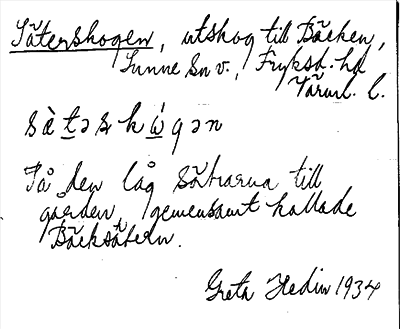 Sätershogen, utskog till Bäcken,
Sunne sn v., Fryksd. hd
Värml. l.
sὰt̲əskὼgən
På den låg sätrarna till
gården, gemensamt kallade
Bäcksätern.
Greta Hedin 1934